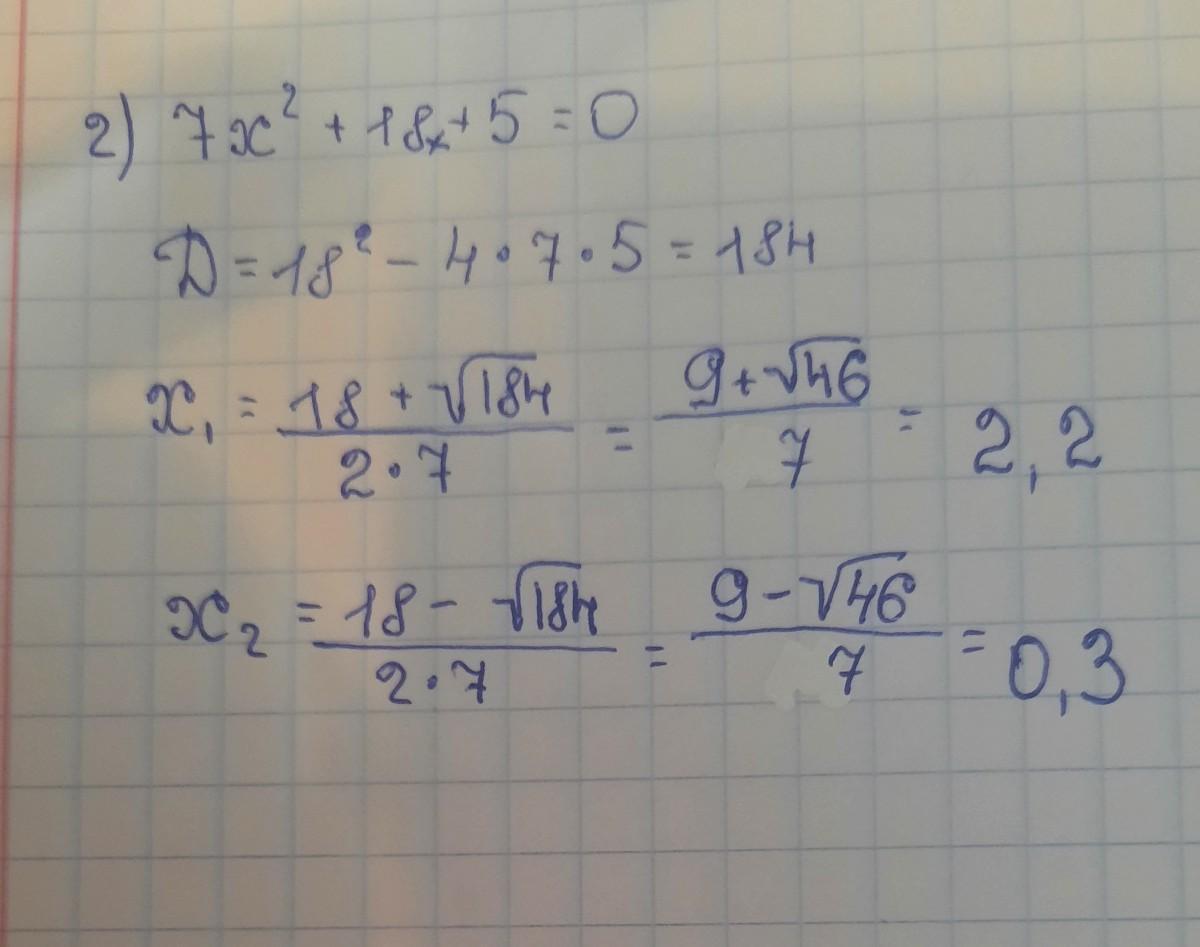 2) 7x² + 18x + 5 = 0
D = 18² - 4 · 7 · 5 = 184
x₁ = (18 + √184)/(2 · 7) = (9 + √46)/7 = 2,2
x₂ = (18 - √184)/(2 · 7) = (9 - √46)/7 = 0,3